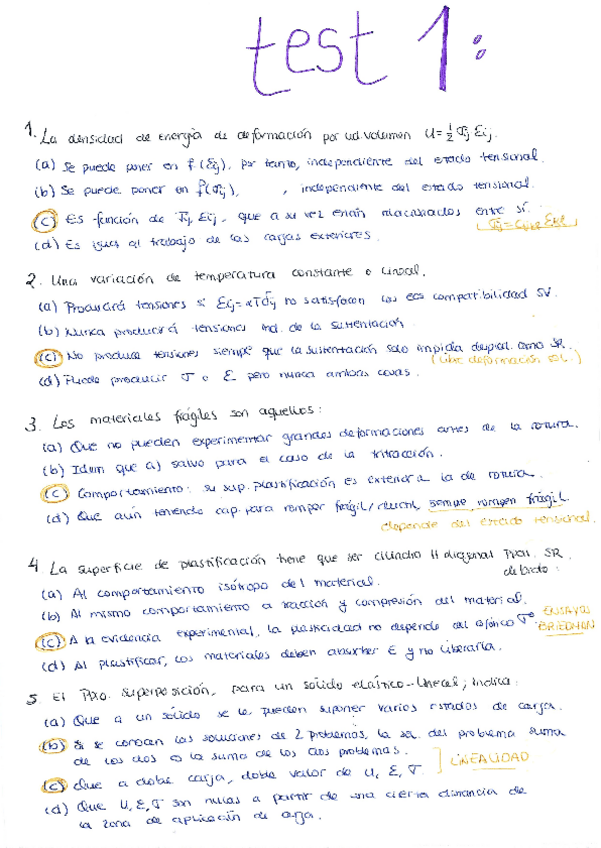 test 1:
1. La densidad de energía de deformación por ud. volumen U=½ σij εij.
(a) Se puede poner en f(εij), por tanto, independiente del estado tensional.
(b) Se puede poner en f(σij), , independiente del estado tensional.
(c) Es función de σij, εij, que a su vez están relacionados entre sí.
σij = Cijkl εkl
(d) Es igual al trabajo de las cargas exteriores.
2. Una variación de temperatura constante o lineal.
(a) Producirá tensiones si εij=αTδij no satisfacen las ecs compatibilidad SV.
(b) Nunca producirá tensiones ind. de la sustentación.
(c) No produce tensiones siempre que la sustentación solo impida desplaz. como SR.
(libre deformación sol.)
(d) Puede producir σ o ε pero nunca ambas cosas.
3. Los materiales frágiles son aquellos:
(a) Que no pueden experimentar grandes deformaciones antes de la rotura.
(b) Idem que a) salvo para el caso de la tracción.
(c) Comportamiento: su sup. plastificación es exterior a la de rotura.
(d) Que aún teniendo cap. para romper frágil/ , siempre rompen frágil.
depende del estado tensional.
4 La superficie de plastificación tiene que ser cilindro II diagonal Ppal. SR.
debido:
(a) Al comportamiento isótropo del material.
(b) Al mismo comportamiento a tracción y compresión del material.
(c) A la evidencia experimental, la plasticidad no depende del esférico σº
ENSAYOS
BRIDGMAN
(d) Al plastificar, los materiales deben absorber E y no liberarla.
5. El Ppio. Superposición, para un sólido elástico-lineal, indica:
(a) Que a un sólido se le pueden suponer varios estados de carga.
(b) Si se conocen las soluciones de 2 problemas, la sol. del problema suma
de los dos es la suma de los dos problemas.
(c) Que a doble carga, doble valor de U, ε, σ.
LINEALIDAD
(d) Que U, ε, σ son nulas a partir de una cierta distancia de
la zona de aplicación de carga.